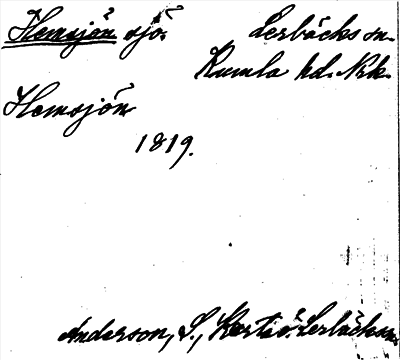 Hemsjön sjö. Lerbäcks sn.
Kumla hd. Nrk.
Hemsjön
1819.
Anderson, S., Karta ö. Lerbäcks sn.